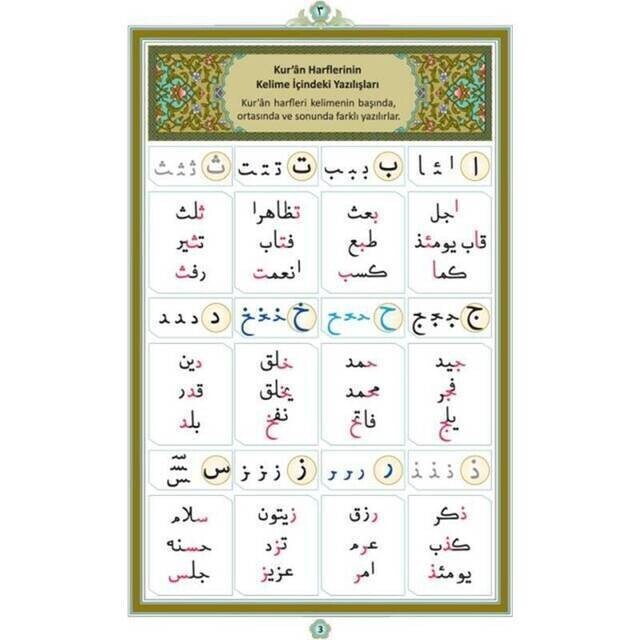 ٣
Kur'ân Harflerinin
Kelime İçindeki Yazılışları
Kur'ân harfleri kelimenin başında,
ortasında ve sonunda farklı yazılırlar.
ا ا ئـ ا
ب بـ ـبـ ـب
ت تـ ـتـ ـت
ث ثـ ـثـ ـث
اجل
قاب يومئذ
كما
بعث
طبع
كسب
تظاهرا
فتاب
انعمت
ثلث
تثير
رفث
ج جـ ـجـ ـج
ح حـ ـحـ ـح
خ خـ ـخـ ـخ
د د ـد ـد
جيد
فجر
يلج
حمد
محمد
فاتح
خلق
يخلق
نفخ
دين
قدر
بلد
ذ ذ ـذ ـذ
ر ر ـر ـر
ز ز ـز ـز
س سـ ـسـ ـس
ذكر
كذب
يومئذ
رزق
عرم
امر
زيتون
تزد
عزيز
سلام
حسنه
جلس
3